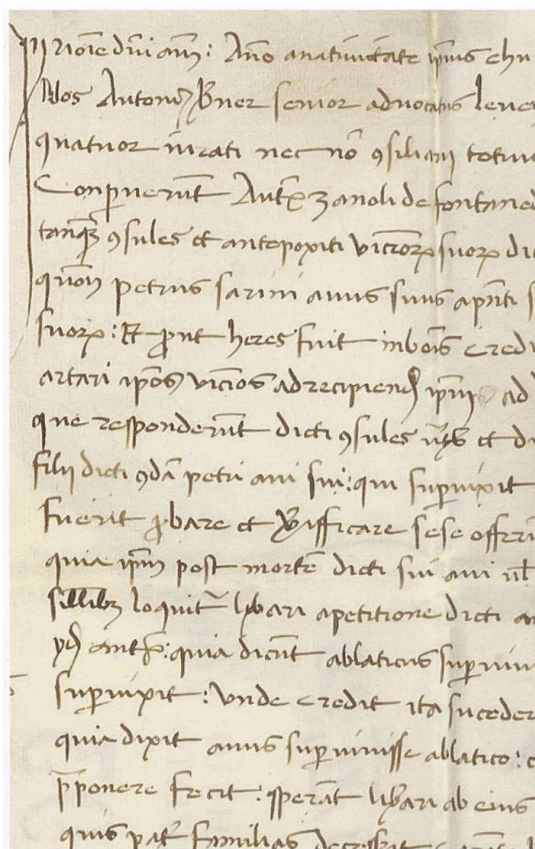 In noīe dn̄i amē: Año anativitate ip̄ius
Nos Antoni senior advocatus
quatuor iurati nec nō ꝯsiliarij
Conparuerūt Ant zanoli de fontaned
tanq̄ ꝯsules et antepoxiti vicīorꝝ suorꝝ
quōn petrus sarini avus suus ap̄nti
suorꝝ: Et ꝓut heres fuit inbōis credi
artari ip̄os vicīos adrecipiend ip̄m ad
que responderūt dicti ꝯsules et
filij dicti ꝯdā petri avi sui: qui suꝑvixit
fuerit ꝓbare et verifficare sese offerū
quia ip̄m post mortē dicti sui avi ul
loquit̄ lib̄ari apetitione dicti
quia dicūt ablaticus suꝑviv
suꝑvixit: Unde credit ita succeder
quia dixit avus suꝑvivisse ablatico:
p̄ponere fecit: sperāt lib̄ari ab eius
quis pat̄ familias